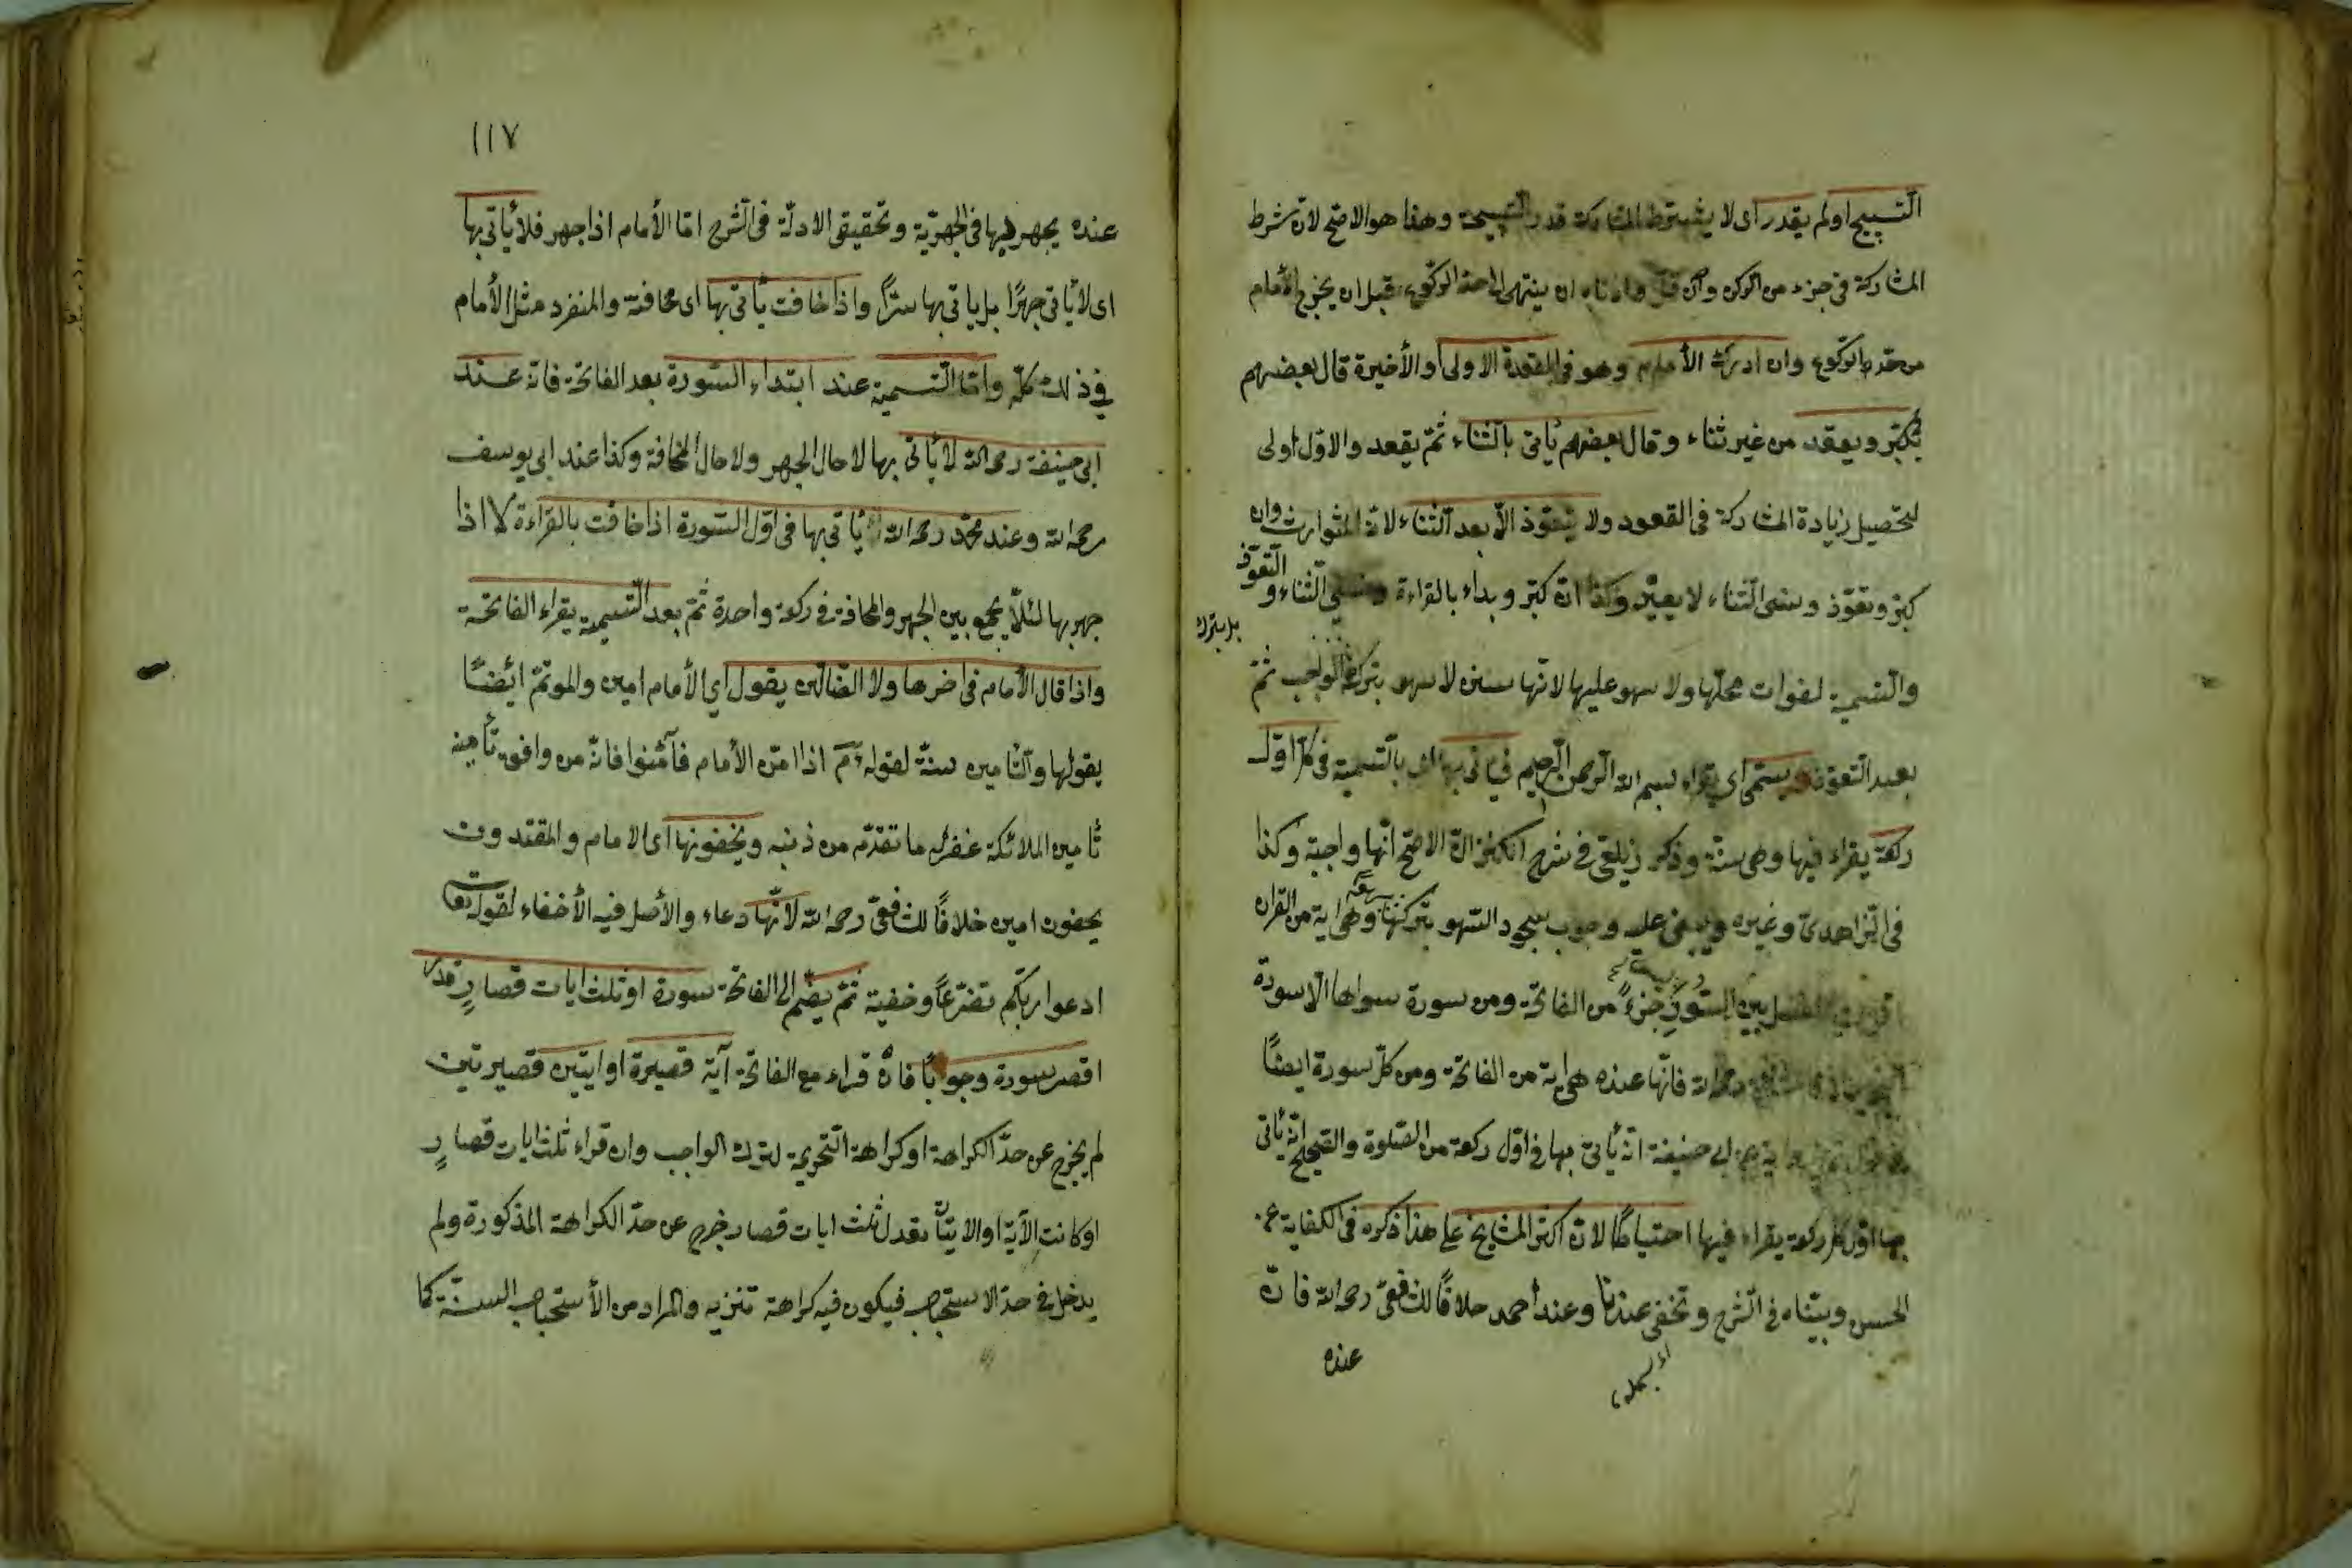 التسبيح او لم يقدر اى لا يشترط المشاركة قدر التسبيحة وهذا هو الاصح لان شرط
المشاركة فى جزء من الركن وان قل وادناه ان ينتهى الى حد الركوع قبل ان يخرج الأمام
من حد الركوع وان ادرك الأمام وهو فى القعدة الاولى أو الأخيرة قال بعضهم
يكبّر ويقعد من غير ثناء وقال بعضهم يأتى بالثناء ثمّ يقعد والاوّل اولى
لتحصيل زيادة المشاركة فى القعود ولا يتعوّذ الاّ بعد الثناء لانه المتوارث وان
كبّر وتعوّذ ونسى الثناء لا يعيد وكذا ان كبّر وبداء بالقراءة ونسى الثناء والتعوّذ
والتسمية لفوات محلّها ولا سهو عليها لانّها سنن لا سهو بتركها الواجب ثمّ
بل بترك
بعد التعوّذ ويسمّى اى يقراء بسم الله الرحمن الرحيم فيأتى بها اى بالتسمية فى كلّ اوّل
ركعة يقراء فيها وهى سنّة وذكر زيلعى فى شرح الكنز انّ الاصحّ انّها واجبة وكذا
فى الزاهدىّ وغيره ويبنى عليه وجوب سجود السّهو بتركها وهى اية من القران
للفصل بين السّور جزءً من الفاتحة ومن سورة سواها الا سورة
رحمه الله فانّها عنده هى اية من الفاتحة ومن كلّ سورة ايضًا
ابى حنيفة انّه يأتى بها فى اوّل ركعة من الصّلوة والصّحيح انّه يأتى
بها اوّل كلّ ركعة يقراء فيها احتياطًا لانّ اكثر المشايخ على هذا ذكره فى الكفاية عن
الحسن وبيّناه فى الشّرح وتخفى عندنا وعند أحمد خلافًا للشافعىّ رحمه الله فانّ
عنده
اى البسملة
١١٧
عنده يجهر بها فى الجهريّة وتحقيق الادلّة فى الشّرح امّا الأمام اذا جهر فلا يأتى بها
اى لا يأتى جهرًا بل ياتى بها سرًّا واذا خافت يأتى بها اى مخافتة والمنفرد مثل الأمام
فى ذلك كلّه وامّا التّسمية عند ابتداء السّورة بعد الفاتحة فانّه عند
ابى حنيفة رحمه الله لا يأتى بها لا حال الجهر ولا حال المخافتة وكذا عند ابى يوسف
رحمه الله وعند محمّد رحمه الله يأتى بها فى اوّل السّورة اذا خافت بالقراءة لا اذا
جهر بها لئلاّ يجمع بين الجهر والمخافتة فى ركعة واحدة ثمّ بعد التّسمية يقراء الفاتحة
واذا قال الأمام فى اخرها ولا الضّالّين يقول اى الأمام امين والموتمّ ايضًا
يقولها والتّأمين سنّة لقوله عم اذا امّن الأمام فأمّنوا فانّه من وافق تأمينه
تأمين الملائكة غفر له ما تقدّم من ذنبه ويخفونها اى الامام والمقتدون
يخفون امين خلافًا للشافعىّ رحمه الله لانّها دعاء والأصل فيه الأخفاء لقوله تعا
ادعوا ربكم تضرّعًا وخفية ثمّ يضم الى الفاتحة سورة او ثلث ايات قصارٍ قدر
اقصر سورة وجوبًا فان قراء مع الفاتحة آية قصيرة او ايتين قصيرتين
لم يخرج عن حدّ الكراهة او كراهة التّحريمة لترك الواجب وان قراء ثلث ايات قصارٍ
او كانت الآية او الايتان تعدل ثلث ايات قصار خرج عن حدّ الكراهة المذكورة ولم
يدخل فى حدّ الاستحباب فيكون فيه كراهة تنزيه والمراد من الأستحباب السنّة كما